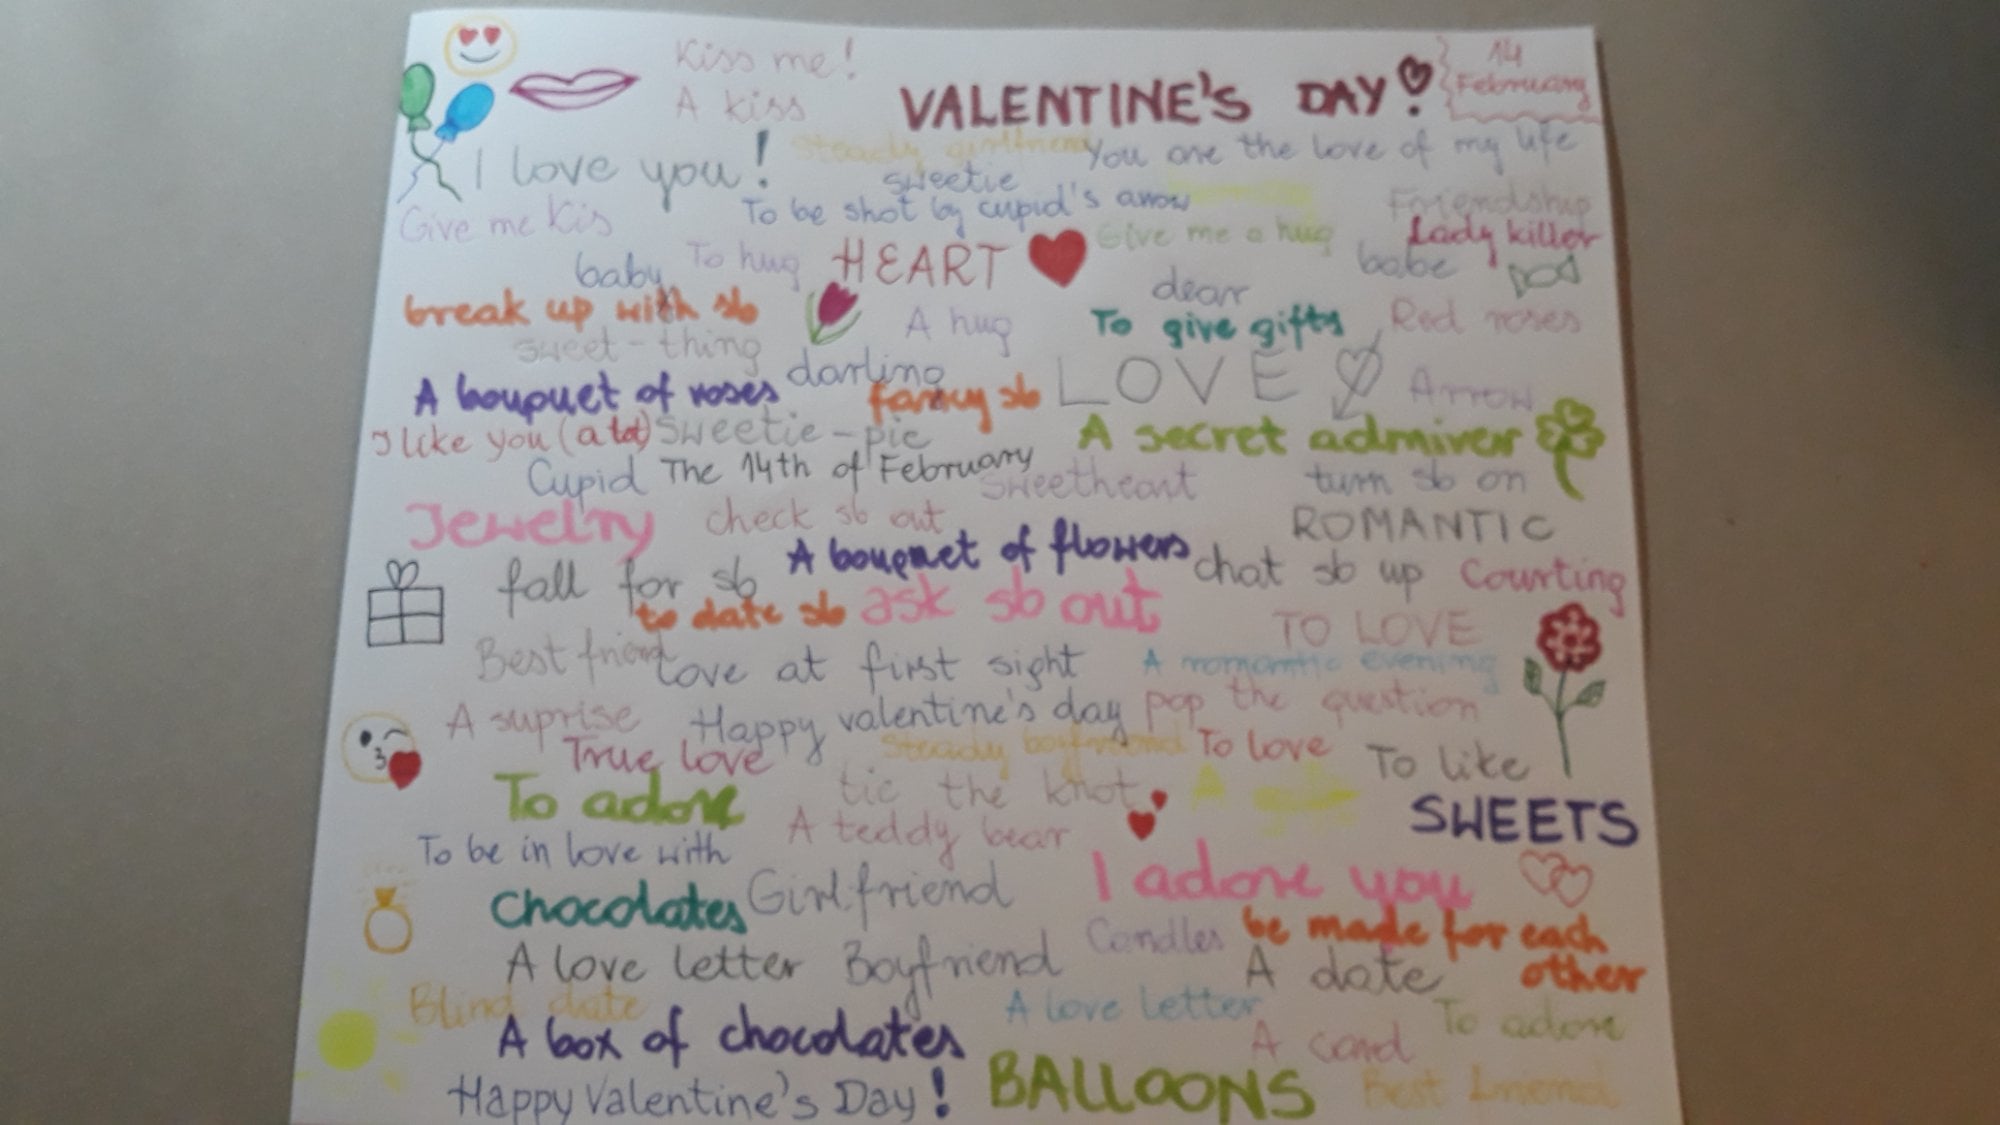 Kiss me!
14
VALENTINE'S DAY!
February
A kiss
I love you!
Steady girlfriend
You are the love of my life
sweetie
Give me Kis
To be shot by cupid's arrow
Friendship
Give me a hug
Lady killer
baby
To hug
HEART
babe
break up with sb
dear
A hug
To give gifts
Red roses
sweet-thing
darling
LOVE
A bouquet of roses
fancy sb
Arrow
I like you (a lot)
Sweetie-pie
A secret admirer
Cupid
The 14th of February
Sweetheart
turn sb on
Jewelry
check sb out
ROMANTIC
A bouquet of flowers
fall for sb
chat sb up
Courting
to date sb
ask sb out
TO LOVE
Best friend
Love at first sight
A romantic evening
A suprise
Happy valentine's day
pop the question
True love
Steady boyfriend
To love
To like
To adore
tie the knot
A
SWEETS
A teddy bear
To be in love with
I adore you
Chocolates
Girlfriend
Candles
be made for each
other
A love letter
Boyfriend
A date
Blind date
A love letter
To adore
A box of chocolates
A card
Happy Valentine's Day!
BALLOONS
Best friend